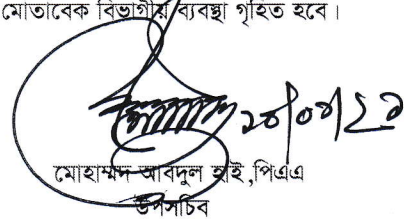 মোতাবেক বিভাগীয় ব্যবস্থা গৃহিত হবে।
মোহাম্মদ আবদুল হাই,পিএএ
উপসচিব